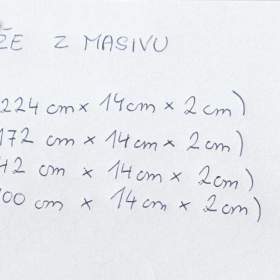 ŽE Z MASIVU
224 cm x 14 cm x 2 cm)
172 cm x 14 cm x 2 cm)
42 cm x 14 cm x 2 cm)
00 cm x 14 cm x 2 cm)